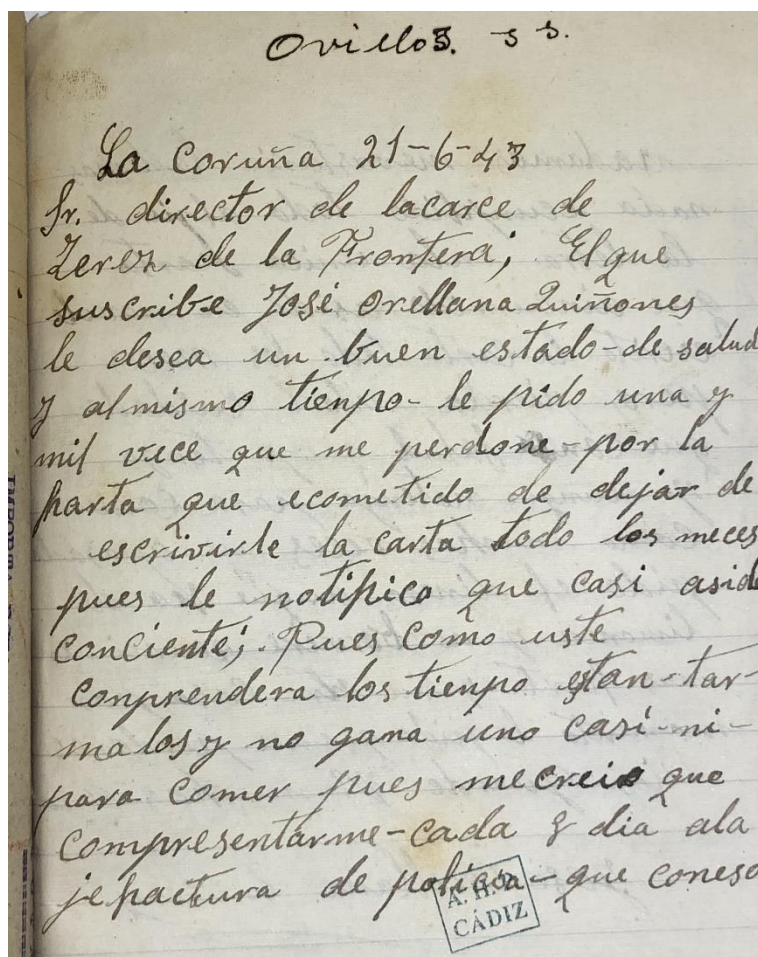 Ovillos. s s.
La Coruña 21-6-43
Sr. director de lacarce de
Zerez de la Frontera; El que
suscribe José Orellana Quiñones
le desea un buen estado-de salud
y al mismo tienpo-le pido una y
mil vece que me perdone-por la
farta que ecometido de dejar de
escrivirle la carta todo los meces
pues le notifico que casi asido
conciente; Pues como uste
conprendera los tienpo estan-tar-
malos y no gana uno casi-ni-
para comer pues mecreio que
compresentarme-cada 8 dia ala
jefactura de policia-que coneso
A. H. P.
CÁDIZ